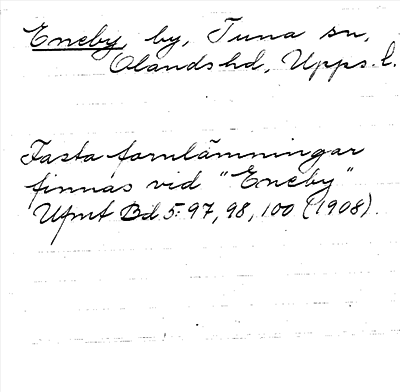 Eneby by, Tuna sn,
Olands hd, Upps. l.
Fasta fornlämningar
finnas vid "Eneby"
Ufmt Bd. 5: 97, 98, 100 (1908).